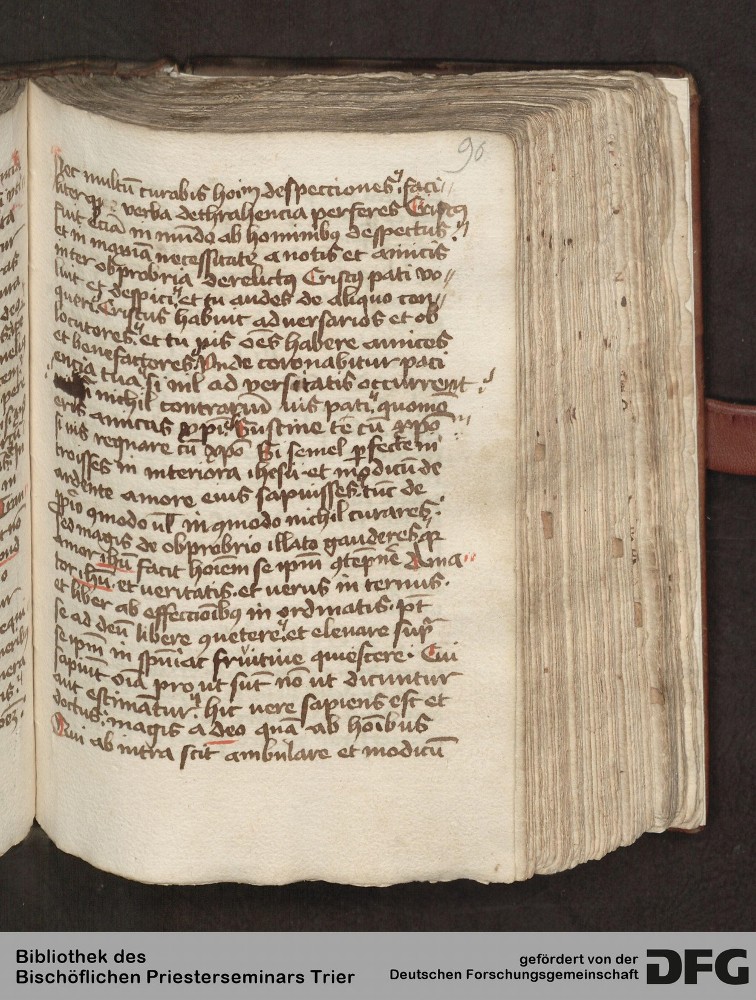 96
Nec multū curabis hoīm despecciones faci-
literq̄ verba dethrahencia perferes Cristꝰ
fuit eciā in mūdo ab hominibꝰ despectus
et in maxia necessitate a notis et amicis
inter obprobria derelictꝰ Cristꝰ pati vo-
luit et despici et tu audes de aliquo con-
queri Cristus habuit adversarios et ob
locutores et tu vis oēs habere amicos
et benefactores Unde coronabitur paci
encia tua si nil adversitatis occurrerit
Si nichil contrariū vis pati quomō
eris amicus xpi Sustine te cū xpo
si vis regnare cū xpo Si semel perfecte in
troisses in interiora ihesu et modicū de
ardente amore eius sapuisses tūc de
proprio ꝯmodo vl inꝯmodo nichil curares
sed magis de obprobrio illato gauderes qꝛ
amor ihū facit hoīem seipm ꝯtēpnē Ama
tor ihū et veritatis et verus internus
et liber ab affectioībus inordinatis pt̄
se ad deū libere ꝯuertere et elevare supra
seipm in spū ac fruitive quiescere Cui
sapiūt oīa prout sūt nō ut dicuntur
aut estimātur hic vere sapiens est et
doctus magis a deo quā ab hoībus
Qui ab intra scit ambulare et modicū
Bibliothek des
Bischöflichen Priesterseminars Trier
gefördert von der
Deutschen Forschungsgemeinschaft
DFG